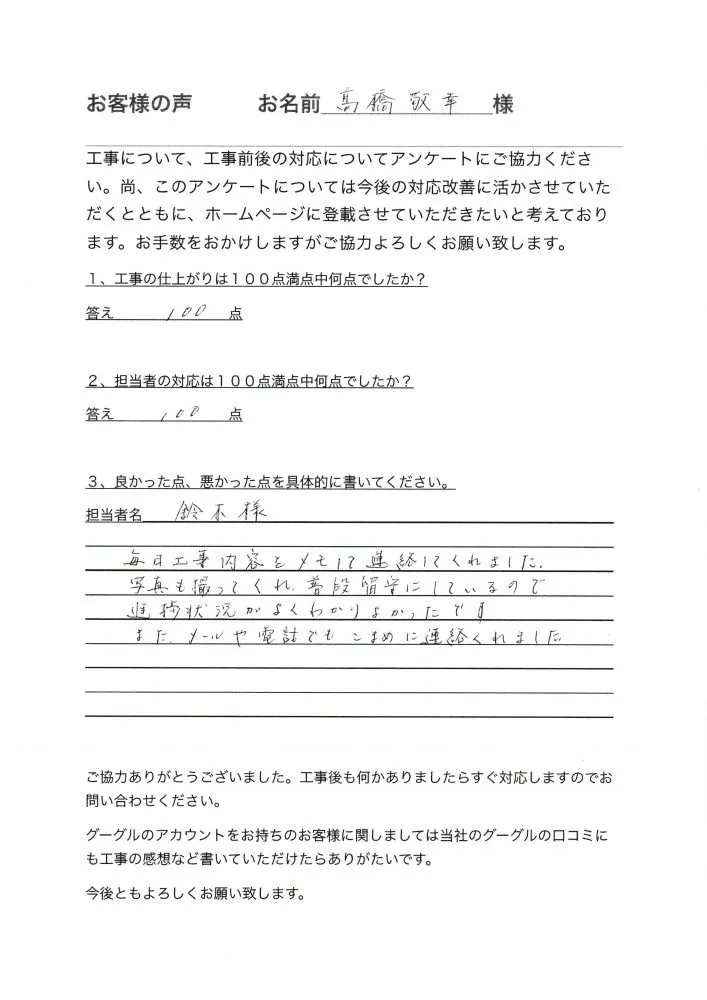 お客様の声 お名前 髙橋 敬幸 様
工事について、工事前後の対応についてアンケートにご協力くださ
い。尚、このアンケートについては今後の対応改善に活かさせていた
だくとともに、ホームページに登載させていただきたいと考えており
ます。お手数をおかけしますがご協力よろしくお願い致します。
1、工事の仕上がりは100点満点中何点でしたか？
答え 100 点
2、担当者の対応は100点満点中何点でしたか？
答え 100 点
3、良かった点、悪かった点を具体的に書いてください。
担当者名 鈴木様
毎日工事内容をメモして連絡してくれました.
写真も撮ってくれ.普段留守にしているので
進捗状況がよくわかりよかったです
また.メールや電話でもこまめに連絡くれました
ご協力ありがとうございました。工事後も何かありましたらすぐ対応しますのでお
問い合わせください。
グーグルのアカウントをお持ちのお客様に関しましては当社のグーグルの口コミに
も工事の感想など書いていただけたらありがたいです。
今後ともよろしくお願い致します。